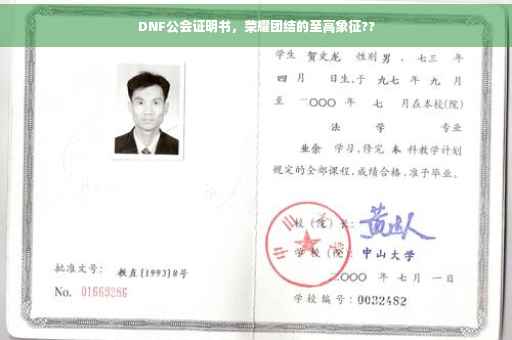 DNF公会证明书，荣耀团结的至高象征??
学生 贺文龙 性别 男 、七三 年
四 月 日生,于 九七 年 九 月
至 二〇〇〇 年 七 月在本校(院)
法 学 专业
业余 学习,修完 本 科教学计划
规定的全部课程,成绩合格,准予毕业。
校 (院) 长:
学 校 (院): 中山大学
二〇〇〇 年 七 月 一 日
学校编号: 0032482
批准文号: 教直 (1993) 8号
No. 01669286